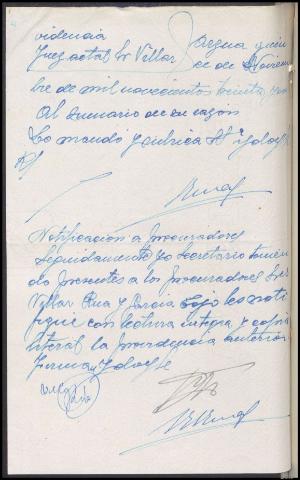 videncia
Juez actal Sr Villar
ce de Noviem
bre de mil novecientos treinta y
Al sumario de su razon
Lo mando y rubrica Sª Sª doy fe
Notificacion a procuradores
Seguidamente yo Secretario tenien
do presentes a los procuradores Sres
Villar Rua y Garcia les noti
fique con lectura integra y copia
literal la providencia anterior
firman doy fe